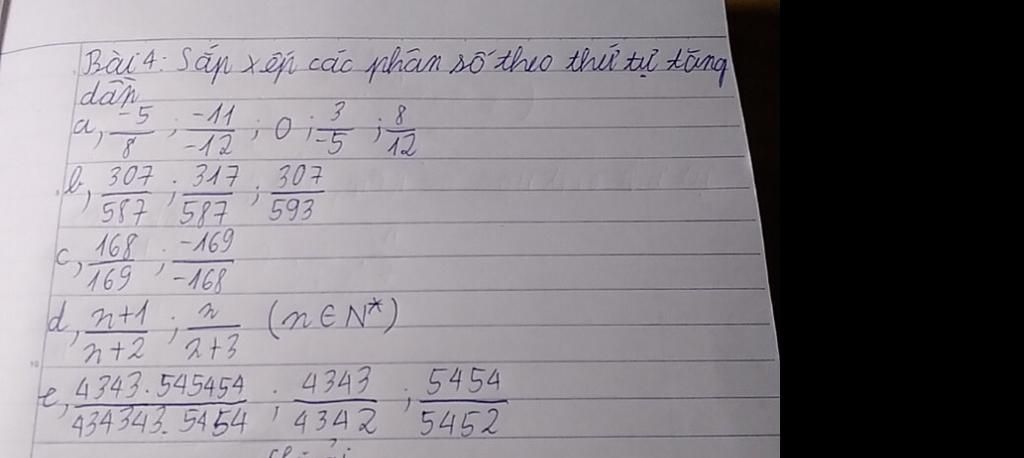 Bài 4: Sắp xếp các phân số theo thứ tự tăng
dần
a, -5/8 ; -11/-12 ; 0 ; 3/-5 ; 8/12
b, 307/587 ; 317/587 ; 307/593
c, 168/169 ; -169/-168
d, n+1/n+2 ; n/n+3 (n ∈ N*)
e, 4343.545454/434343.5454 ; 4343/4342 ; 5454/5452